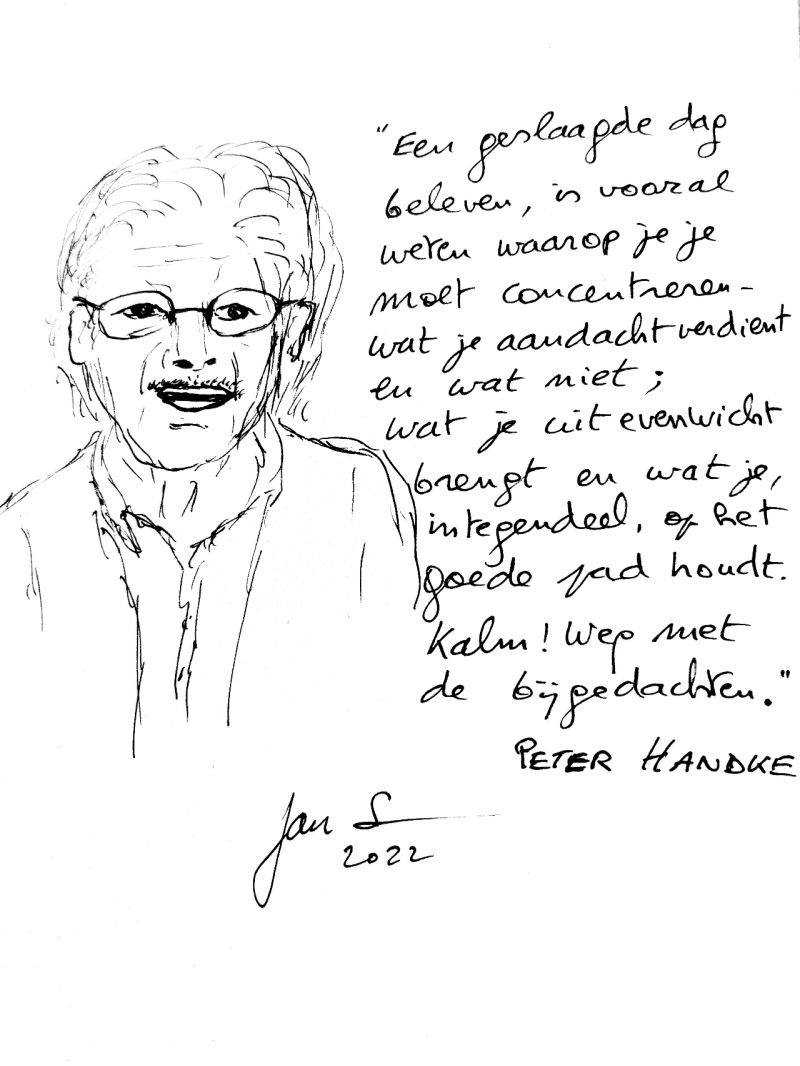 "Een geslaagde dag
beleven, is vooral
weten waarop je je
moet concentreren –
wat je aandacht verdient
en wat niet;
wat je uit evenwicht
brengt en wat je,
integendeel, op het
goede pad houdt.
Kalm! Weg met
de bijgedachten."
PETER HANDKE
Jan S
2022